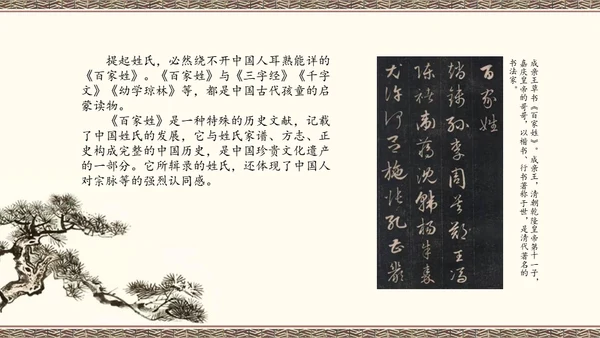 提起姓氏，必然绕不开中国人耳熟能详的
《百家姓》。《百家姓》与《三字经》《千字
文》《幼学琼林》等，都是中国古代孩童的启
蒙读物。
《百家姓》是一种特殊的历史文献，记载
了中国姓氏的发展，它与姓氏家谱、方志、正
史构成完整的中国历史，是中国珍贵文化遗产
的一部分。它所辑录的姓氏，还体现了中国人
对宗脉等的强烈认同感。
百家姓
趙錢孫李周吳鄭王馮
陳褚衛蔣沈韓楊朱秦
尤許何呂施張孔曹嚴
成亲王草书《百家姓》。成亲王，清朝乾隆皇帝第十一子，
嘉庆皇帝的哥哥，以楷书、行书著称于世，是清代著名的
书法家。